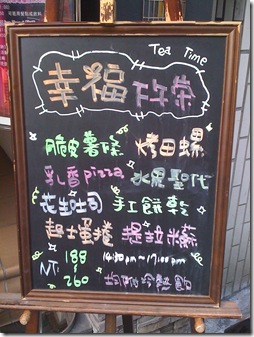 Tea Time
幸福下午茶
脆皮薯條 烤田螺
乳香pizza 水果聖代
花生吐司 手工餅乾
起士蛋捲 提拉米蘇
NT: 188~260 14:30 am~17:00 pm
均附冷熱飲